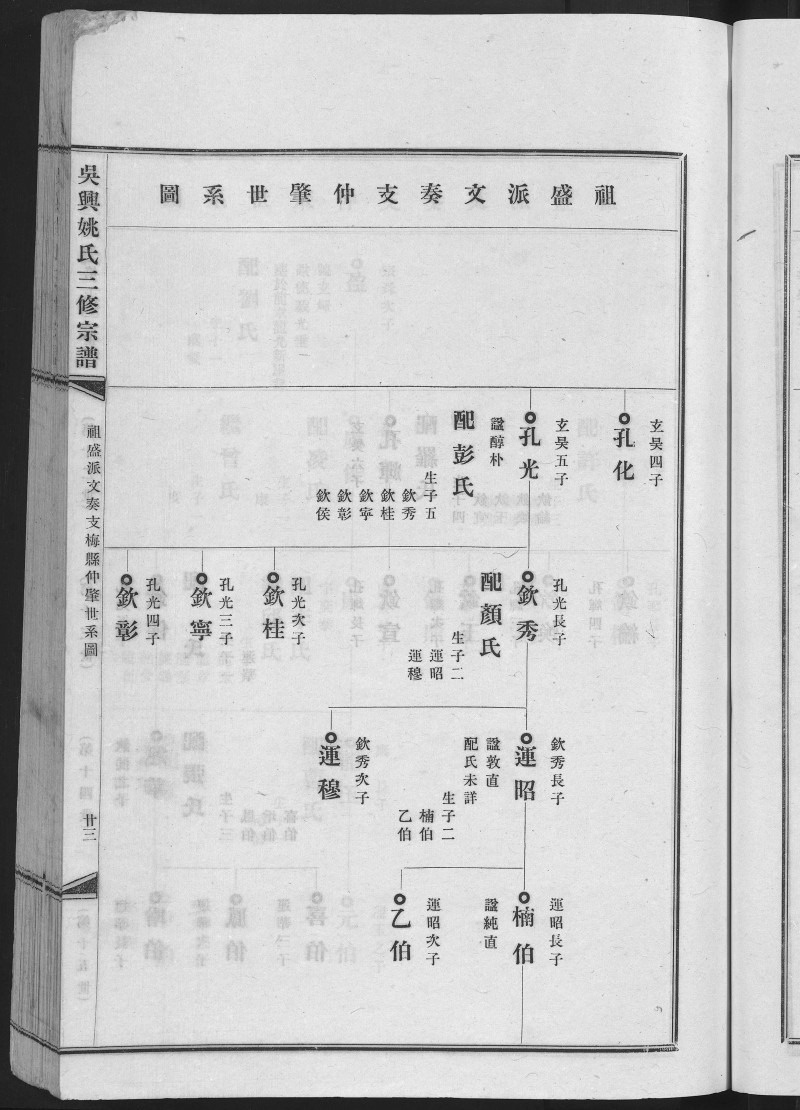 祖盛派文奏支仲肇世系圖
玄昊四子
孔化
玄昊五子
孔光
諡醇朴
配彭氏
生子五
欽秀
欽桂
欽寧
欽彰
欽侯
孔光長子
欽秀
配顏氏
生子二
運昭
運穆
孔光次子
欽桂
孔光三子
欽寧
孔光四子
欽彰
欽秀長子
運昭
諡敦直
配氏未詳
生子二
楠伯
乙伯
欽秀次子
運穆
運昭長子
楠伯
諡純直
運昭次子
乙伯
吳興姚氏三修宗譜
祖盛派文奏支梅縣仲肇世系圖
廿三